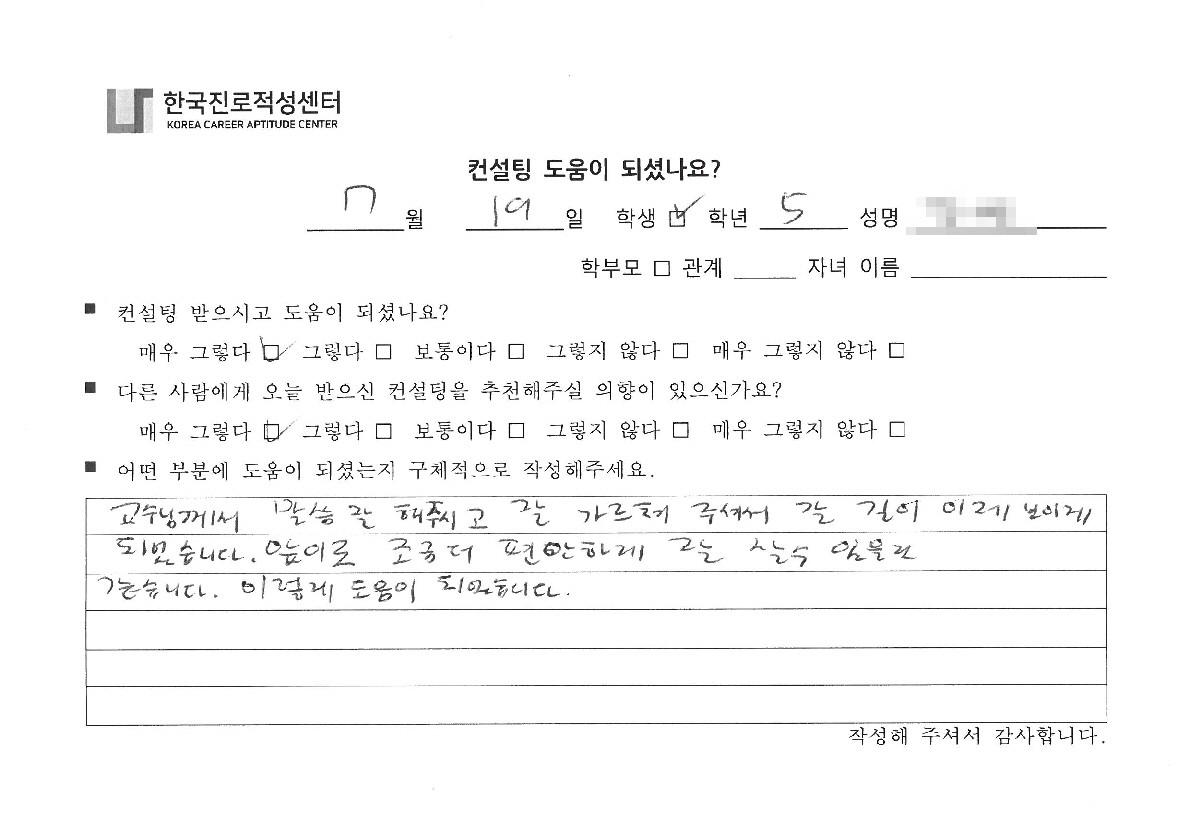 한국진로적성센터
KOREA CAREER APTITUDE CENTER
컨설팅 도움이 되셨나요?
7월 19일 학생 ☑ 학년 5 성명
학부모 □ 관계 자녀 이름
■ 컨설팅 받으시고 도움이 되셨나요?
매우 그렇다 ☑ 그렇다 □ 보통이다 □ 그렇지 않다 □ 매우 그렇지 않다 □
■ 다른 사람에게 오늘 받으신 컨설팅을 추천해주실 의향이 있으신가요?
매우 그렇다 ☑ 그렇다 □ 보통이다 □ 그렇지 않다 □ 매우 그렇지 않다 □
■ 어떤 부분에 도움이 되셨는지 구체적으로 작성해주세요.
교수님께서 말씀 잘 해주시고 잘 가르쳐 주셔서 갈 길이 이제 보이게
되었습니다. 앞이로 조금더 편안하게
같습니다. 이렇게 도움이 되었습니다.
작성해 주셔서 감사합니다.